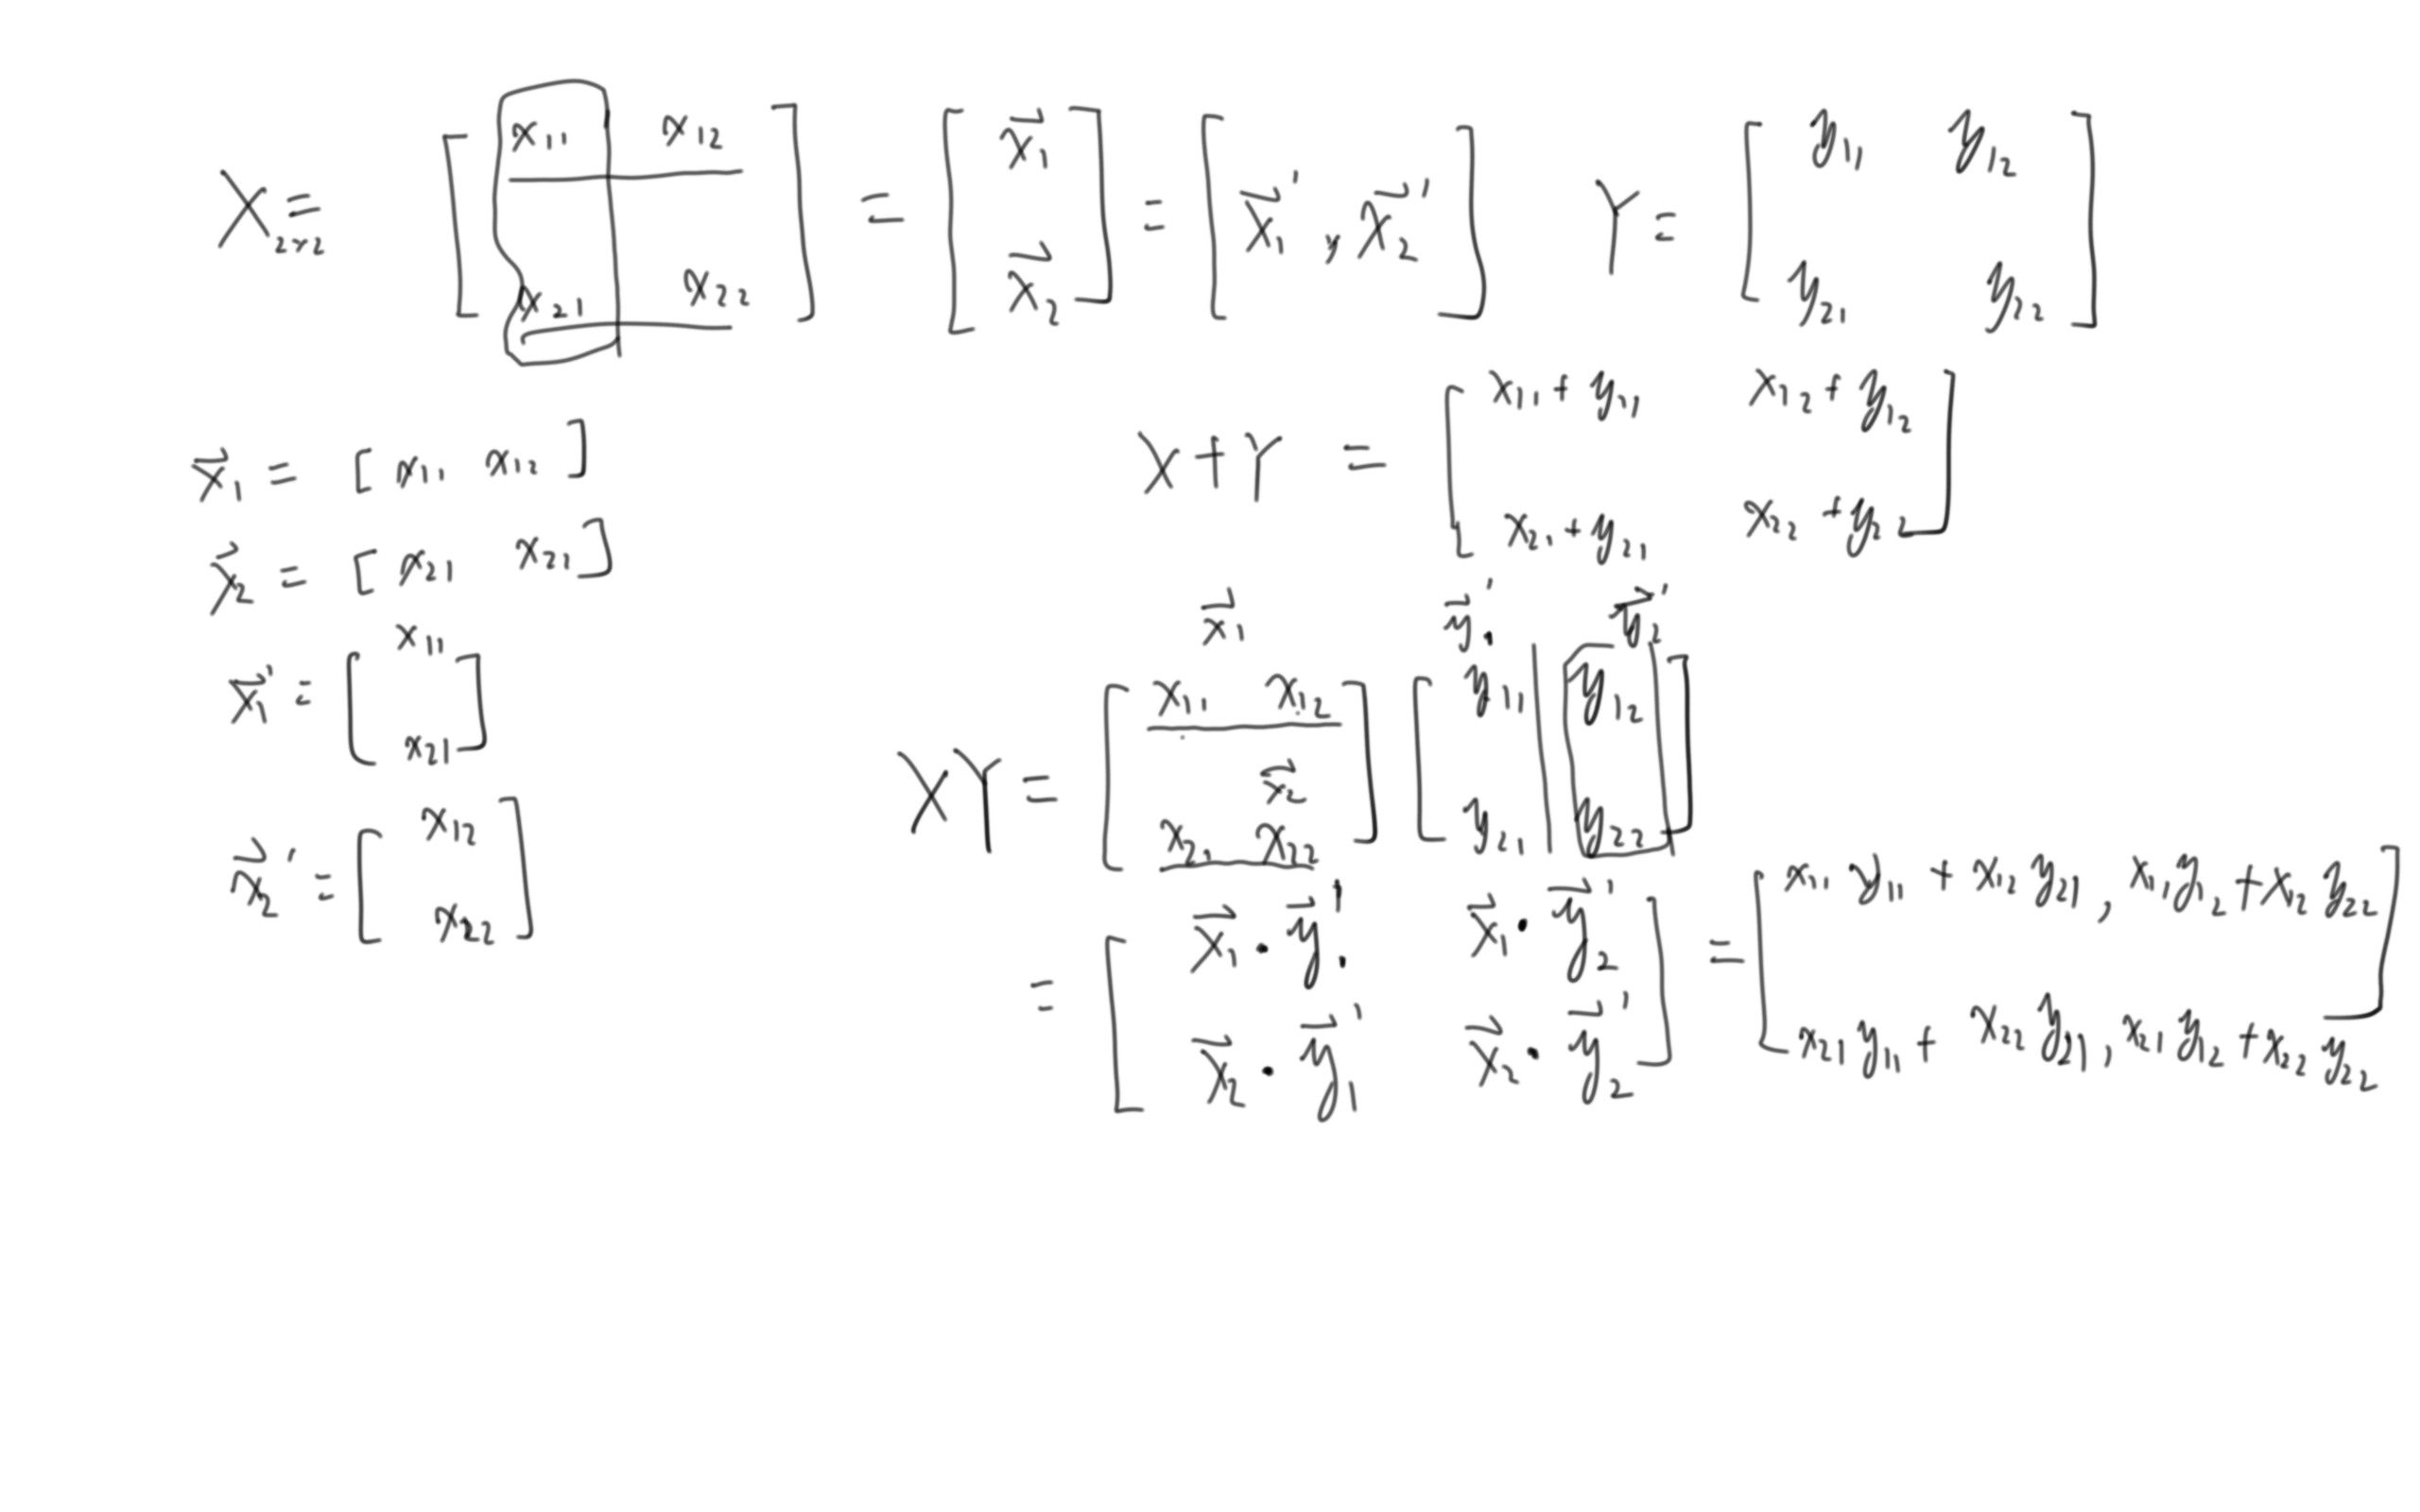 X₂ₓ₂ = [ x₁₁ x₁₂ ; x₂₁ x₂₂ ] = [ x⃗₁ ; x⃗₂ ] = [ x⃗₁' , x⃗₂' ] Y = [ y₁₁ y₁₂ ; y₂₁ y₂₂ ]
x⃗₁ = [ x₁₁ x₁₂ ]
x⃗₂ = [ x₂₁ x₂₂ ]
x⃗₁' = [ x₁₁ ; x₂₁ ]
x⃗₂' = [ x₁₂ ; x₂₂ ]
X + Y = [ x₁₁ + y₁₁ x₁₂ + y₁₂ ; x₂₁ + y₂₁ x₂₂ + y₂₂ ]
x⃗₁ y⃗₁' y⃗₂'
XY = [ x₁₁ x₁₂ ; x₂₁ x₂₂ ] [ y₁₁ y₁₂ ; y₂₁ y₂₂ ]
x⃗₂
= [ x⃗₁ · y⃗₁' x⃗₁ · y⃗₂' ; x⃗₂ · y⃗₁' x⃗₂ · y⃗₂' ] = [ x₁₁ y₁₁ + x₁₂ y₂₁ , x₁₁ y₁₂ + x₁₂ y₂₂ ; x₂₁ y₁₁ + x₂₂ y₂₁ , x₂₁ y₁₂ + x₂₂ y₂₂ ]